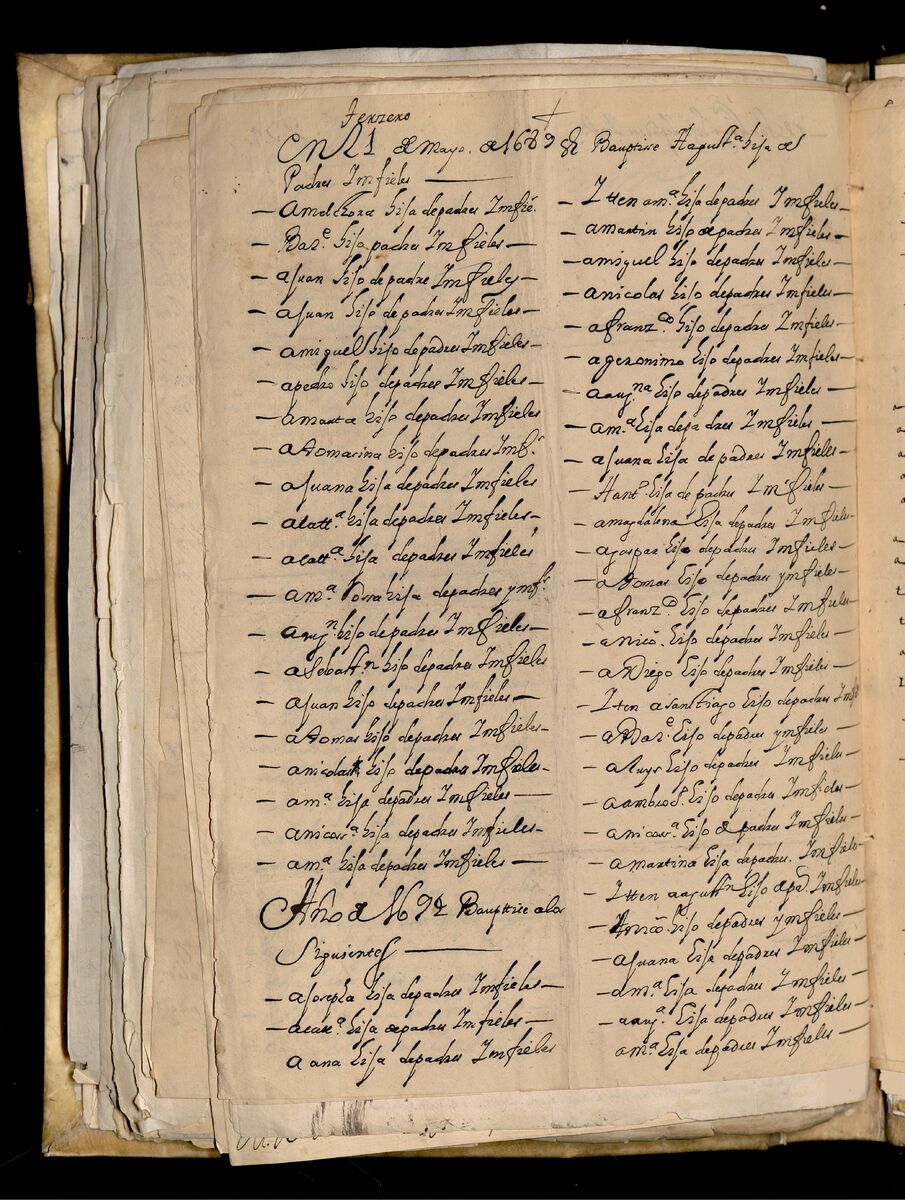 Terzero
En 21 de Mayo. de 1689 @ Bauptice Hagust.ª hija de
Padres Imfieles
— Amelchora hija de padres Imfie.
— Bar.e hija padres Imfieles —
— aJuan hijo de padre Imfieles —
— aJuan hijo de padres Imfieles —
— amiguel hijo de padres Imfieles —
— apedro hijo de padres Imfieles —
— amarta hija de padres Imfieles
— atomasina hija de padres Imf.
— aJuana hija de padres Imfieles
— acatt.ª hija de padres Imfieles —
— acatt.ª hija de padres Imfieles
— am.ª Rosa hija de padres ymf.
— aagu.n hijo de padres Imfieles —
— aSebast.n hijo de padres Imfieles
— aJuan hijo de padres Imfieles —
— atomas hijo de padres Imfieles —
— anicolas hijo de padres Imfieles —
— am.ª hija de padres Imfieles —
— anicor.ª hija de padres Imfieles —
— am.ª hija de padres Imfieles —
Año de 1692 Bauptice alos
Siguientes
— aJosepha hija de padres Imfieles —
— acatt.ª hija de padres Imfieles —
Aana hija de padres Imfieles
— Itten am.ª hija de padres Imfieles —
— amartin hijo de padres Imfieles —
— amiguel hijo de padres Imfieles —
— anicolas hijo de padres Imfieles —
— afranz.co hijo de padres Imfieles —
— ageronimo hijo de padres Imfieles —
— aagu.na hija de padres Imfieles —
— am.ª hija de padres Imfieles —
— aJuana hija de padres Imfieles
— Hant.ª hija de padres Imfieles —
— amagdalena hija de padres Imfieles —
— agaspar hijo de padres Imfieles —
— atomas hijo de padres ymfieles —
— afranz.co hijo de padres Imfieles —
— anico. hijo de padres Imfieles
— aDiego hijo de padres Imfieles —
— Itten aSantiago hijo de padres Imfi
— aBar.e hijo de padres ymfieles —
— aluys hijo de padres Imfieles —
— aambros. hijo de padres Imfieles —
— anicor.ª hija de padres Imfieles —
— amartina hija de padres. Imfieles —
— Itten aagustt.n hijo de pad. Imfieles —
— Anico. hijo de padres ymfieles —
— aJuana hija de padres Imfieles —
— am.ª hija de padres Imfieles —
— aagu.ª hija de padres Imfieles —
am.ª hija de padres Imfieles —